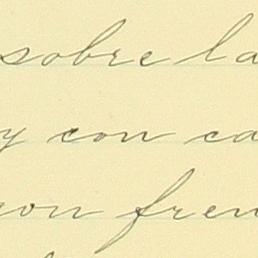 sobre la
y con ca
ron fren